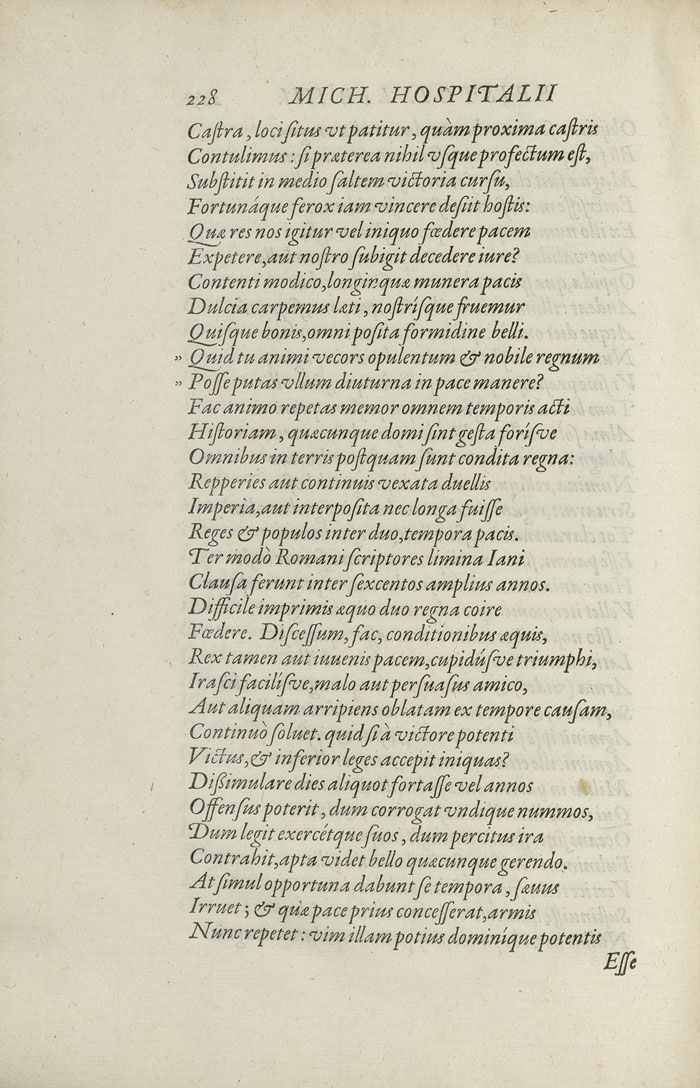 228 MICH. HOSPITALII
Caſtra, loci ſitus vt patitur, quàm proxima caſtris
Contulimus: ſi præterea nihil vſque profectum eſt,
Subſtitit in medio ſaltem victoria curſu,
Fortunáque ferox iam vincere deſiit hoſtis:
Quæ res nos igitur vel iniquo fœdere pacem
Expetere, aut noſtro ſubigit decedere iure?
Contenti modico, longinquæ munera pacis
Dulcia carpemus læti, noſtríſque fruemur
Quiſque bonis, omni poſita formidine belli.
„ Quid tu animi vecors opulentum & nobile regnum
„ Poſſe putas vllum diuturna in pace manere?
Fac animo repetas memor omnem temporis acti
Hiſtoriam, quæcunque domi ſint geſta foríſve
Omnibus in terris poſtquam ſunt condita regna:
Repperies aut continuis vexata duellis
Imperia, aut interpoſita nec longa fuiſſe
Reges & populos inter duo, tempora pacis.
Ter modò Romani ſcriptores limina Iani
Clauſa ferunt inter ſexcentos amplius annos.
Difficile imprimis æquo duo regna coire
Fœdere. Diſceſſum, fac, conditionibus æquis,
Rex tamen aut iuuenis pacem, cupidúſve triumphi,
Iraſci faciliſve, malo aut perſuaſus amico,
Aut aliquam arripiens oblatam ex tempore cauſam,
Continuò ſoluet. quid ſi à victore potenti
Victus, & inferior leges accepit iniquas?
Dißimulare dies aliquot fortaſſe vel annos
Offenſus poterit, dum corrogat vndique nummos,
Dum legit exercétque ſuos, dum percitus ira
Contrahit, apta videt bello quæcunque gerendo.
At ſimul opportuna dabunt ſe tempora, ſæuus
Irruet; & quæ pace prius conceſſerat, armis
Nunc repetet: vim illam potius dominíque potentis
Eſſe